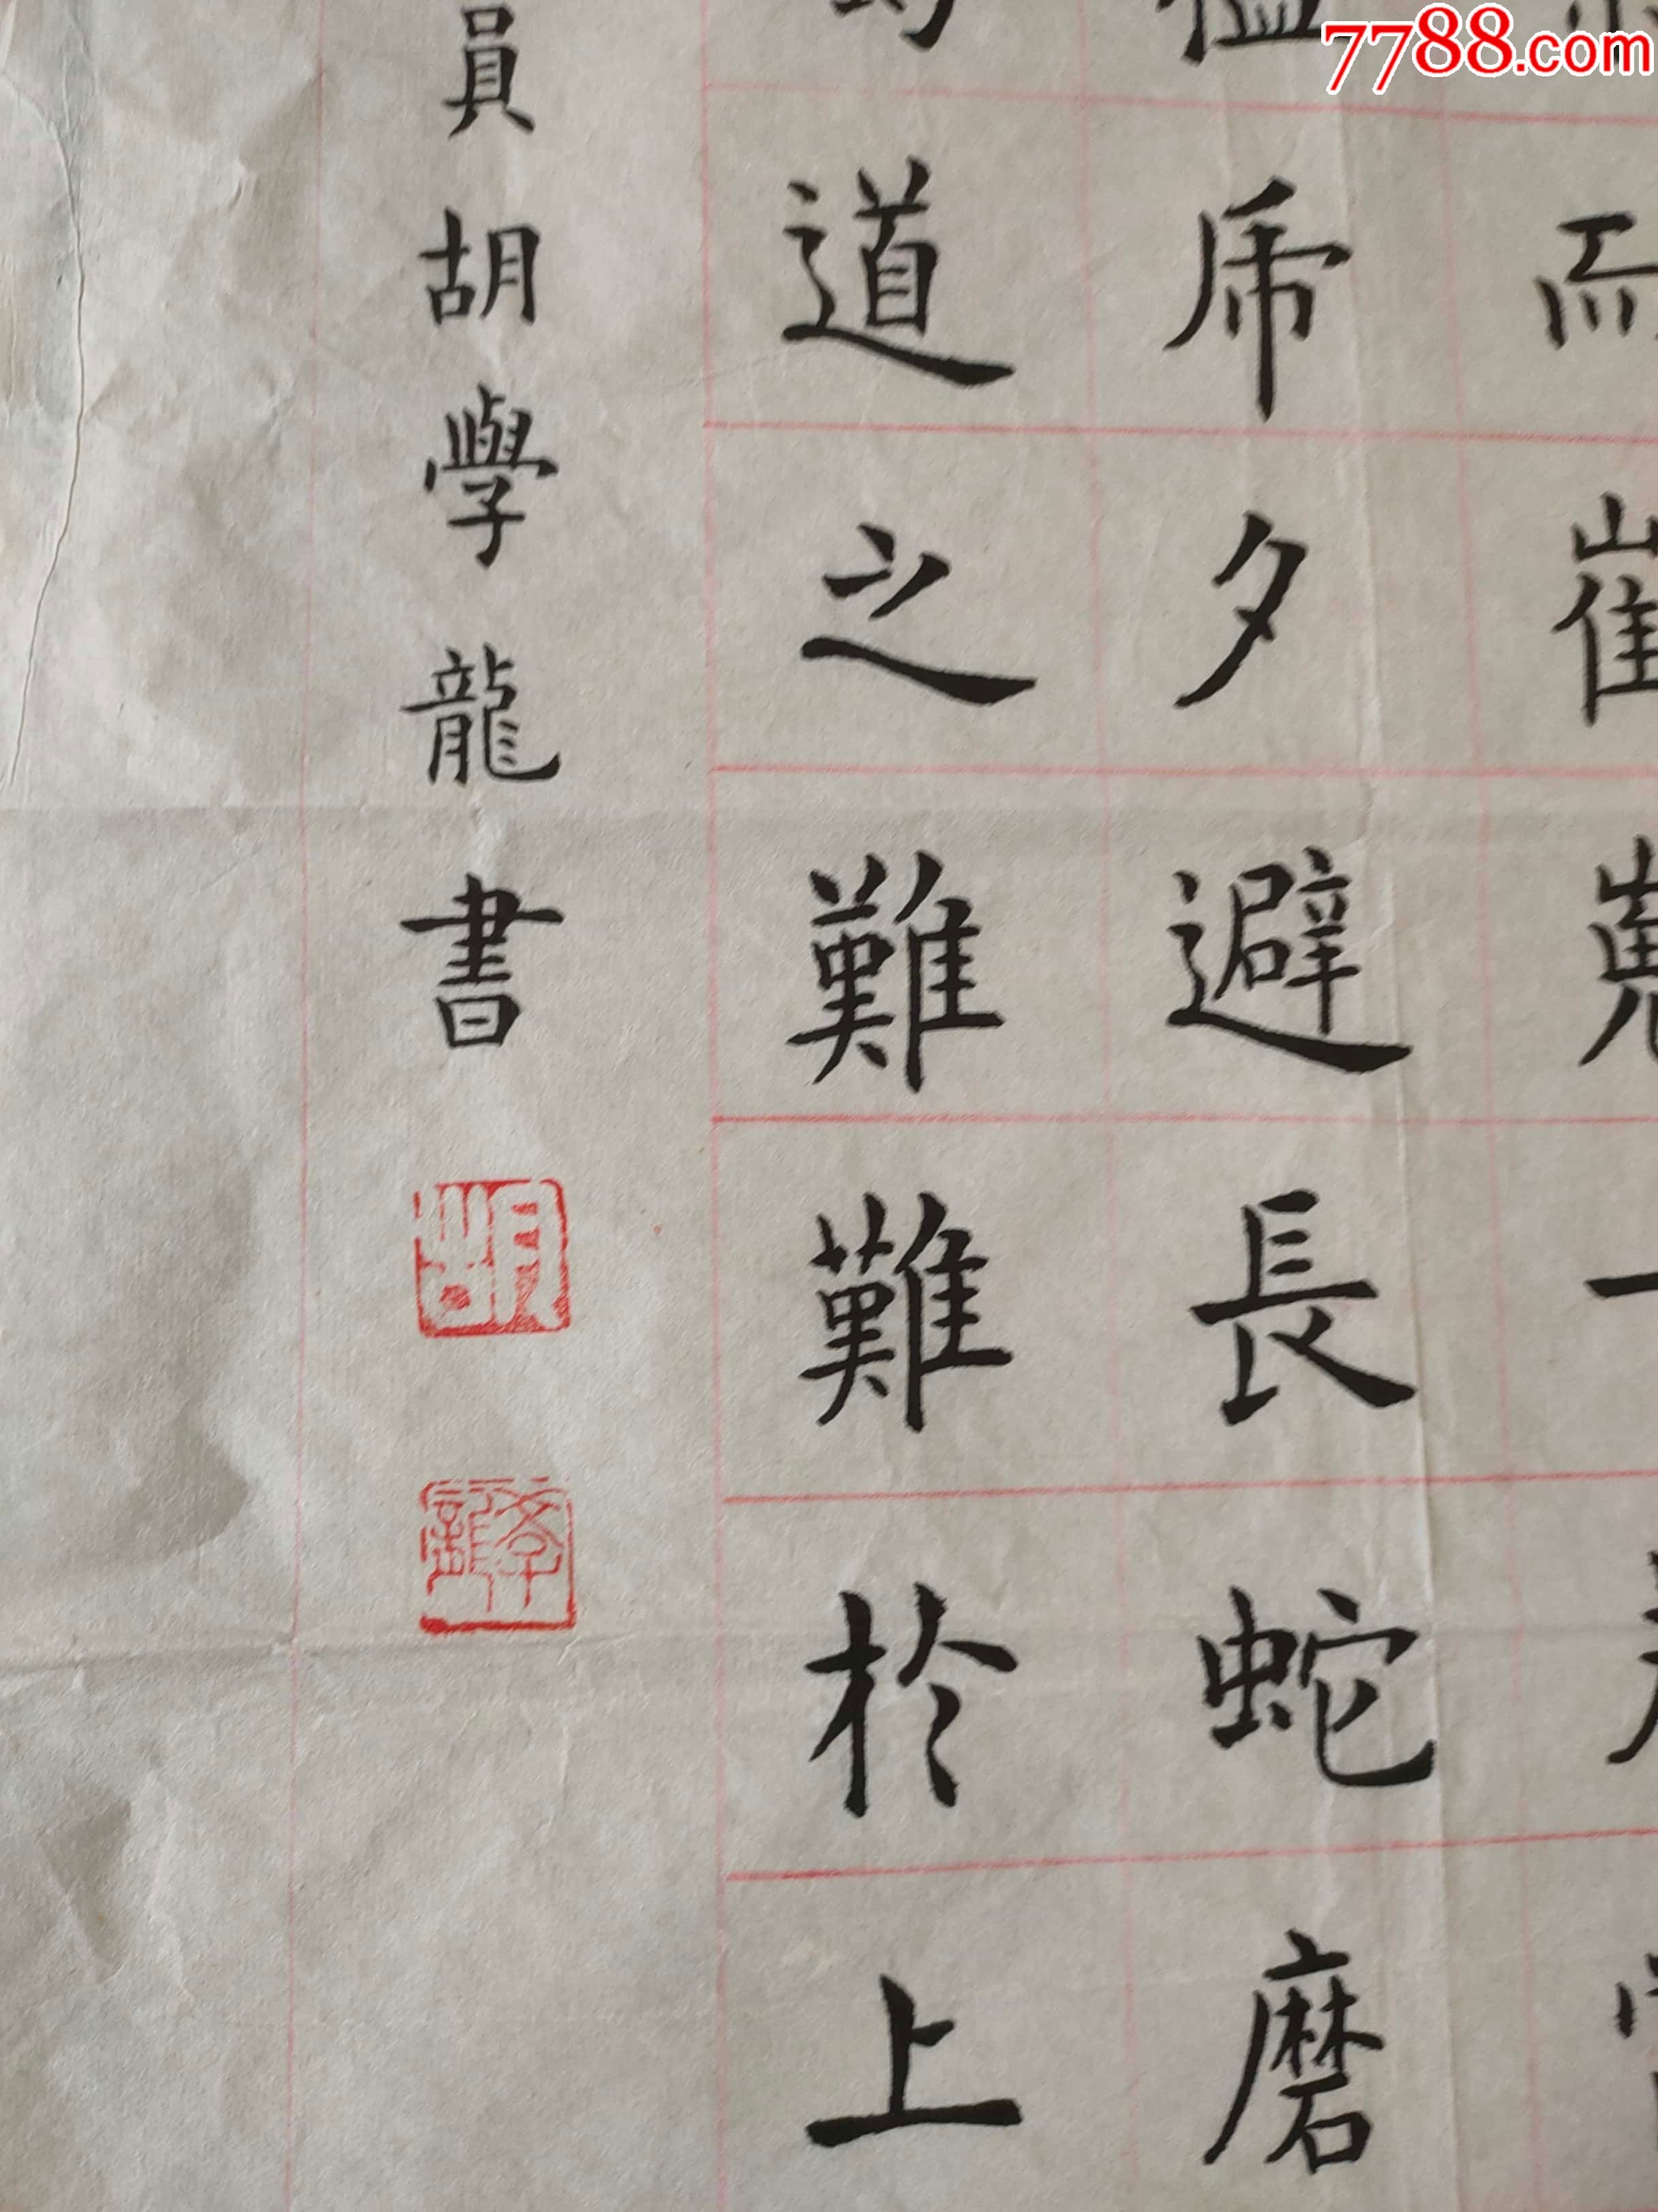 而崔嵬一
乕夕避長蛇磨
道之難難於上
員胡學龍書
胡
學龍
7788.com